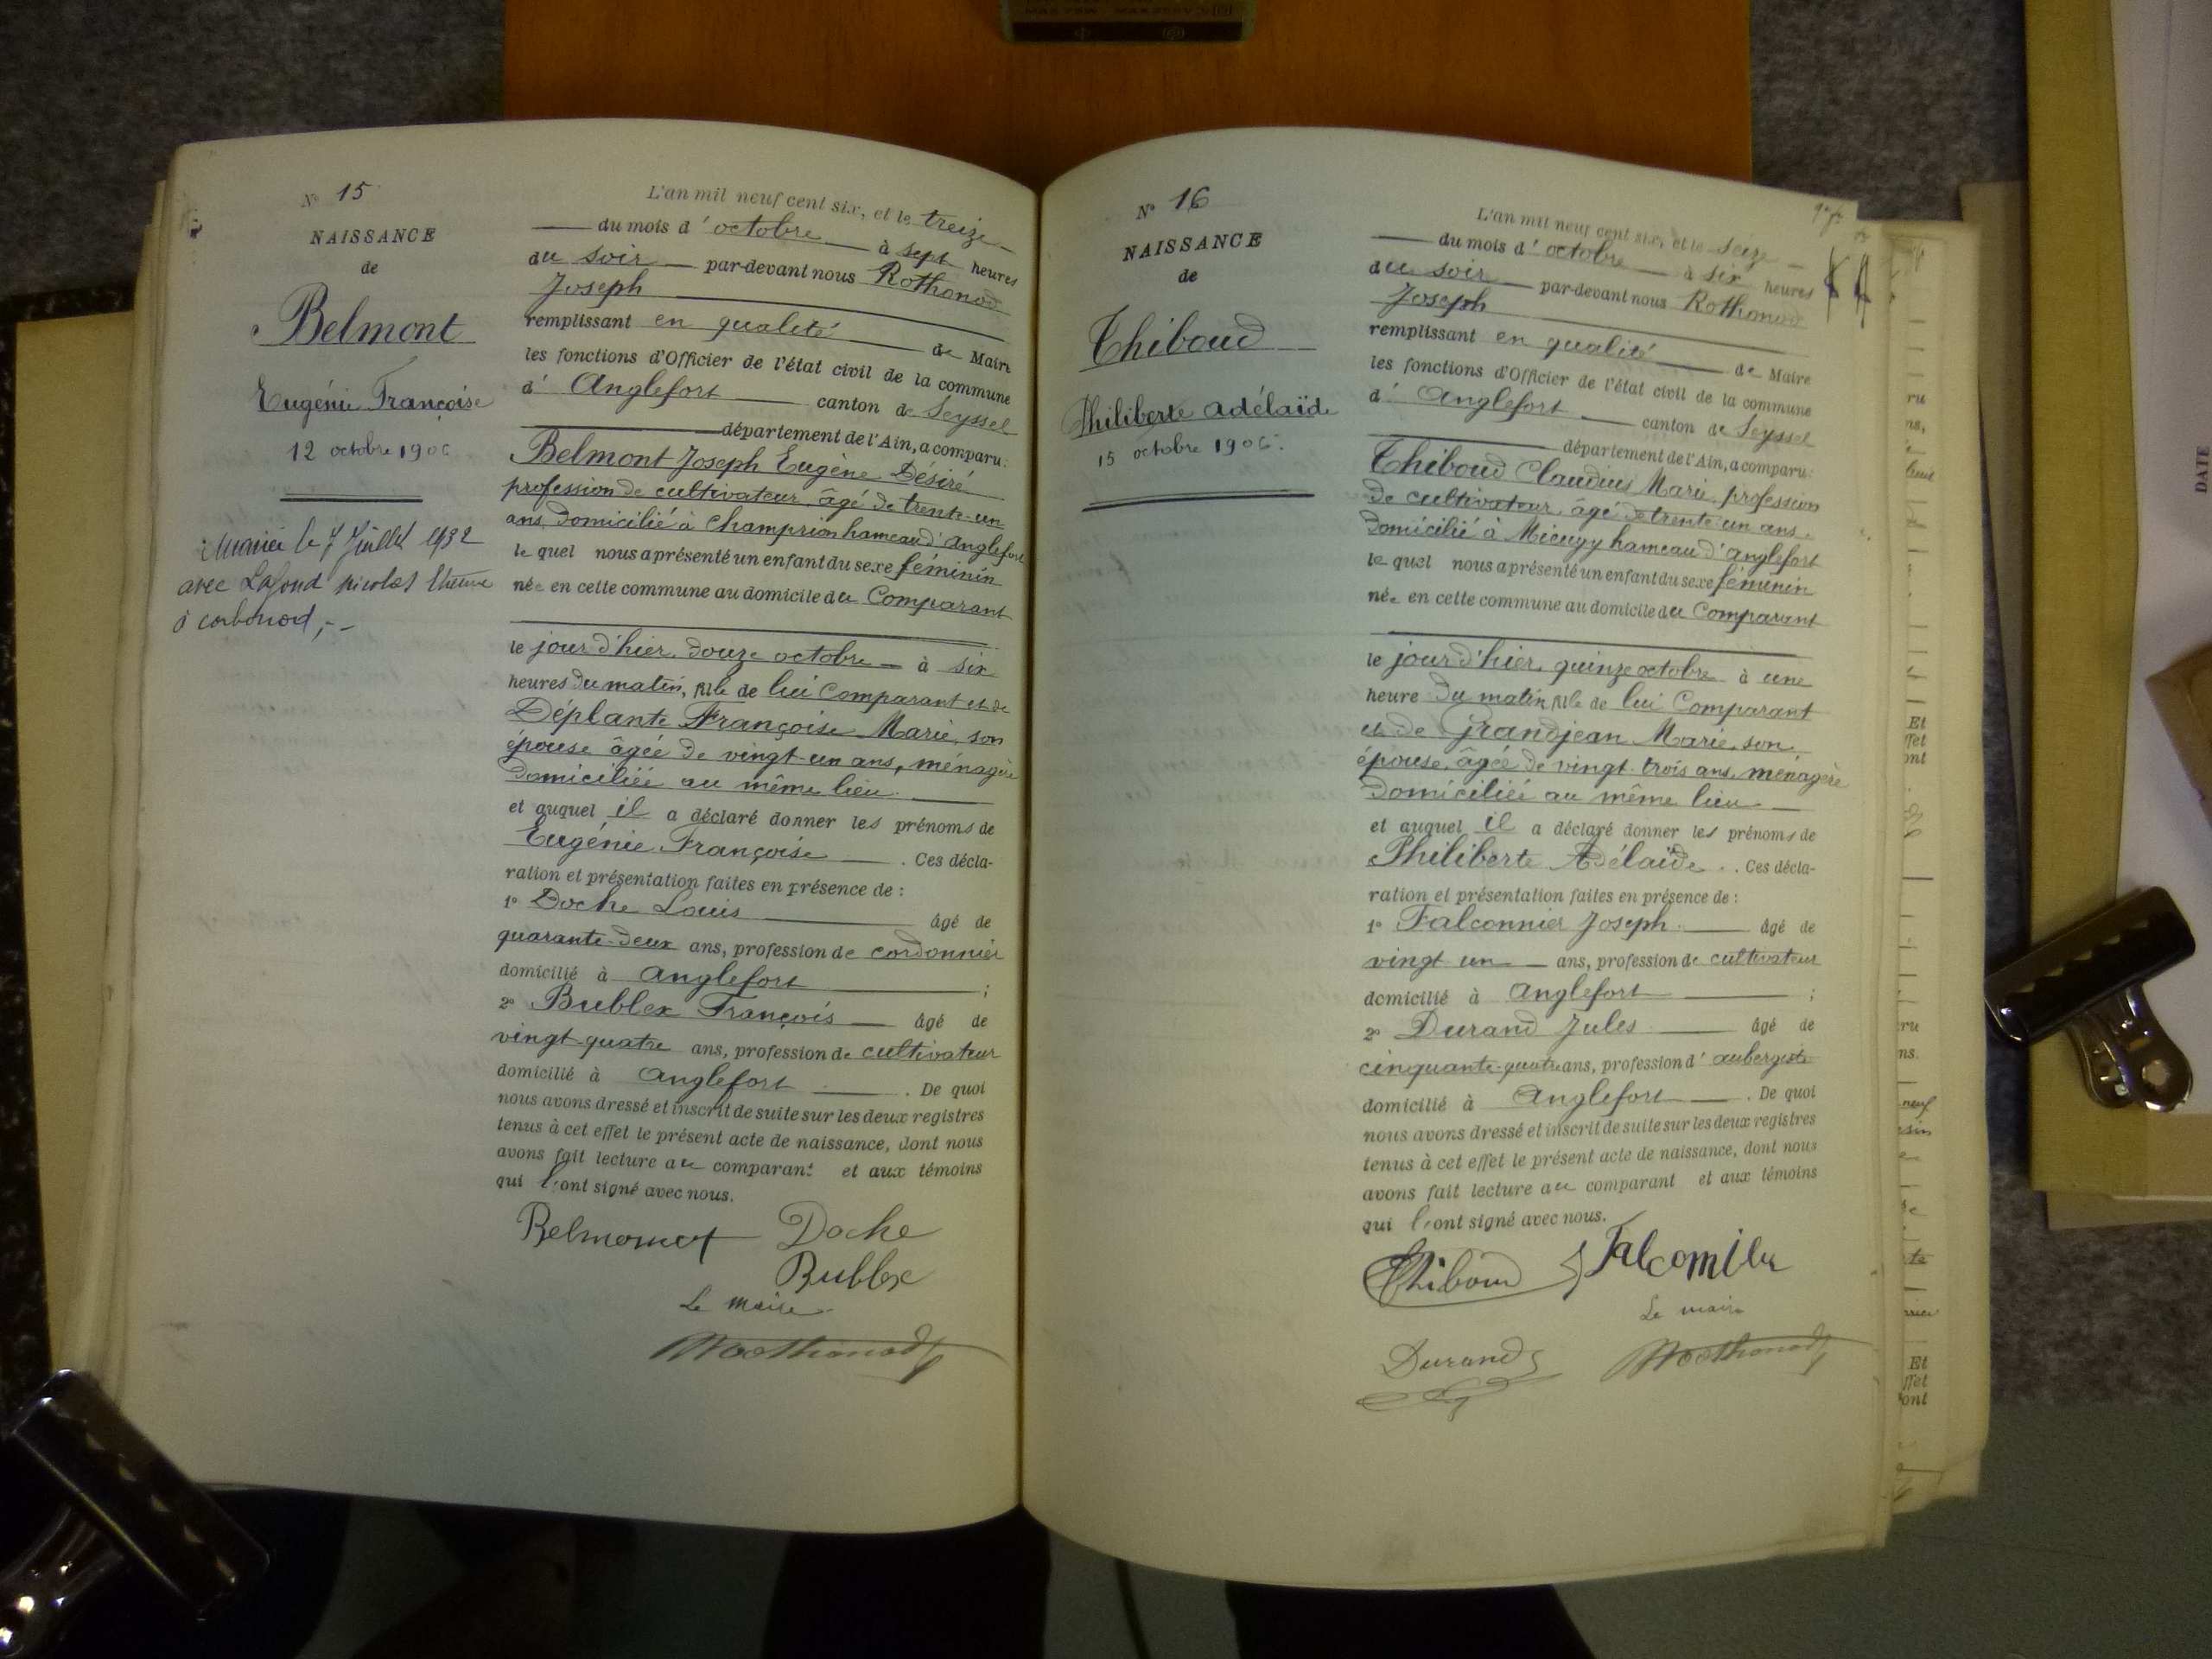 N° 15
NAISSANCE
de
Belmont
Eugénie Françoise
12 octobre 1906
Mariée le 7 Juillet 1932
avec Lafond Nicolas
à corbonod,
L'an mil neuf cent six, et le treize
du mois d'octobre à sept heures
du soir par-devant nous Rothonod
Joseph
remplissant en qualité de Maire
les fonctions d'Officier de l'état civil de la commune
d'Anglefort canton de Seyssel
département de l'Ain, a comparu:
Belmont Joseph Eugène Désiré
profession de cultivateur, âgé de trente-un
ans, domicilié à Champrion hameau d'Anglefort
lequel nous a présenté un enfant du sexe féminin
née en cette commune au domicile du Comparant
le jour d'hier, douze octobre à six
heures du matin, fille de lui Comparant et de
Déplante Françoise Marie, son
épouse âgée de vingt-un ans, ménagère
domiciliée au même lieu.
et auquel il a déclaré donner les prénoms de
Eugénie Françoise. Ces décla-
ration et présentation faites en présence de :
1° Doche Louis âgé de
quarante-deux ans, profession de cordonnier
domicilié à Anglefort ;
2° Bublex François âgé de
vingt-quatre ans, profession de cultivateur
domicilié à Anglefort. De quoi
nous avons dressé et inscrit de suite sur les deux registres
tenus à cet effet le présent acte de naissance, dont nous
avons fait lecture au comparant et aux témoins
qui l'ont signé avec nous.
Belmont Doche
Bublex
Le maire
Rothonod
N° 16
NAISSANCE
de
Thiboud
Philiberte Adélaïde
15 octobre 1906.
L'an mil neuf cent six, et le seize
du mois d'octobre à six heures
du soir par-devant nous Rothonod
Joseph
remplissant en qualité de Maire
les fonctions d'Officier de l'état civil de la commune
d'Anglefort canton de Seyssel
département de l'Ain, a comparu:
Thiboud Claudius Marie, profession
de cultivateur, âgé de trente-un ans,
domicilié à Mieugy hameau d'Anglefort
lequel nous a présenté un enfant du sexe féminin
née en cette commune au domicile du Comparant
le jour d'hier, quinze octobre à une
heure du matin, fille de lui Comparant
et de Grandjean Marie, son
épouse, âgée de vingt-trois ans, ménagère
domiciliée au même lieu
et auquel il a déclaré donner les prénoms de
Philiberte Adélaïde. Ces décla-
ration et présentation faites en présence de :
1° Falconnier Joseph âgé de
vingt un ans, profession de cultivateur
domicilié à Anglefort ;
2° Durand Jules âgé de
cinquante-quatre ans, profession d'aubergiste
domicilié à Anglefort. De quoi
nous avons dressé et inscrit de suite sur les deux registres
tenus à cet effet le présent acte de naissance, dont nous
avons fait lecture au comparant et aux témoins
qui l'ont signé avec nous.
Thiboud Falconnier
Le maire
Durand Rothonod
DATE